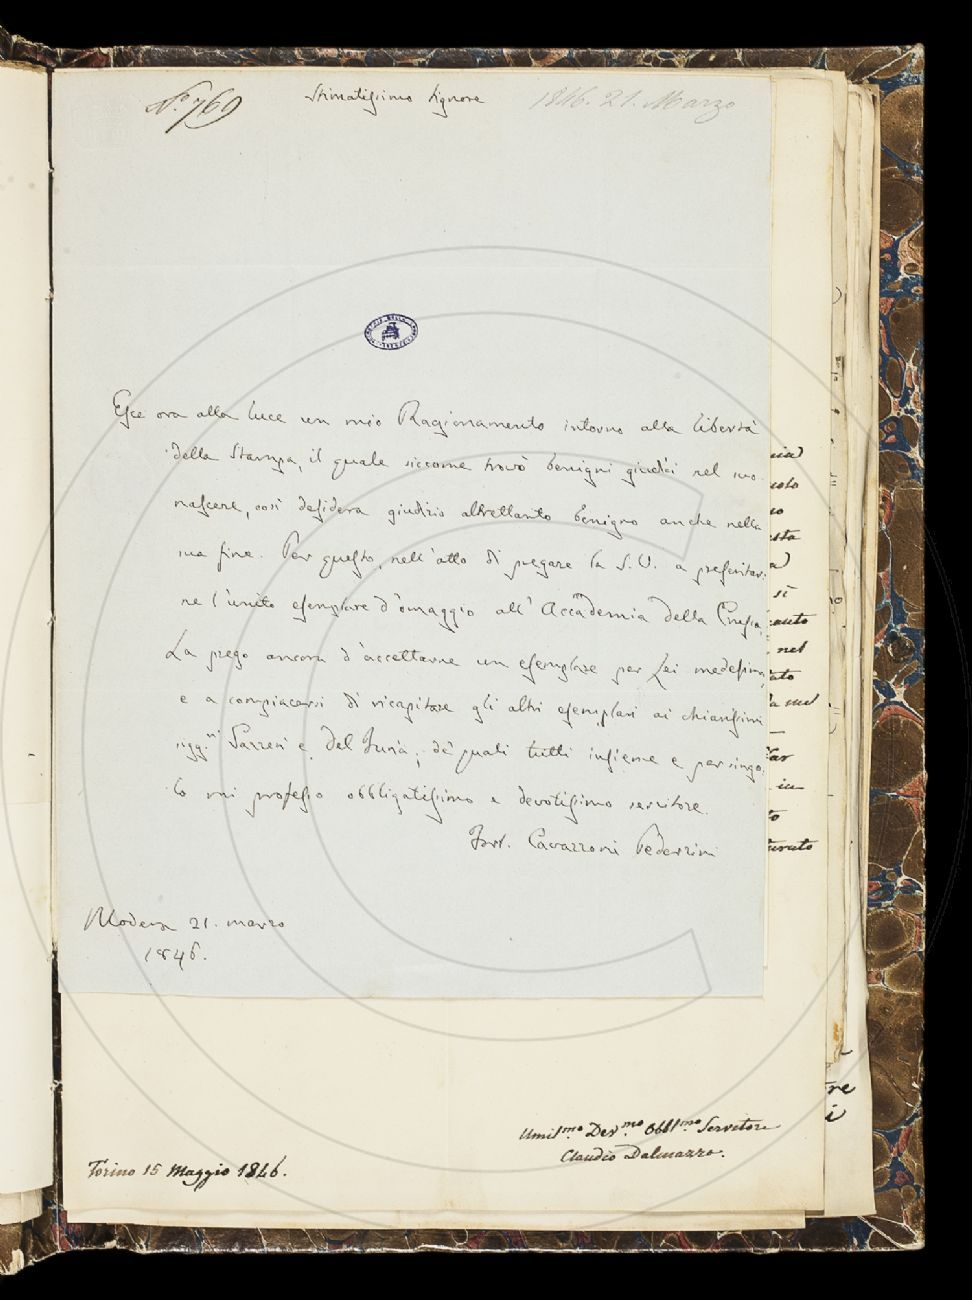 N.º 769
Stimatissimo Signore
1846. 21. Marzo
Esce ora alla luce un mio Ragionamento intorno alla libertà
della Stampa, il quale siccome trovò benigni giudici nel suo
nascere, così desidera giudizio altrettanto benigno anche nella
sua fine. Per questo, nell'atto di pregare la S. V. a presentar-
ne l'unito esemplare d'omaggio all'Accademia della Crusca,
La prego ancora d'accettarne un esemplare per Lei medesimo,
e a compiacersi di ricapitare gli altri esemplari ai chiarissimi
sigg.ri e Del Furia; de' quali tutti insieme e per singo-
lo mi professo obbligatissimo e devotissimo servitore.
Fort. Cavazzoni Pederzini
Modena 21. marzo
1846.
Umil.mo Dev.mo Obbl.mo Servitore
Claudio Dalmazzo.
Torino 15 Maggio 1846.